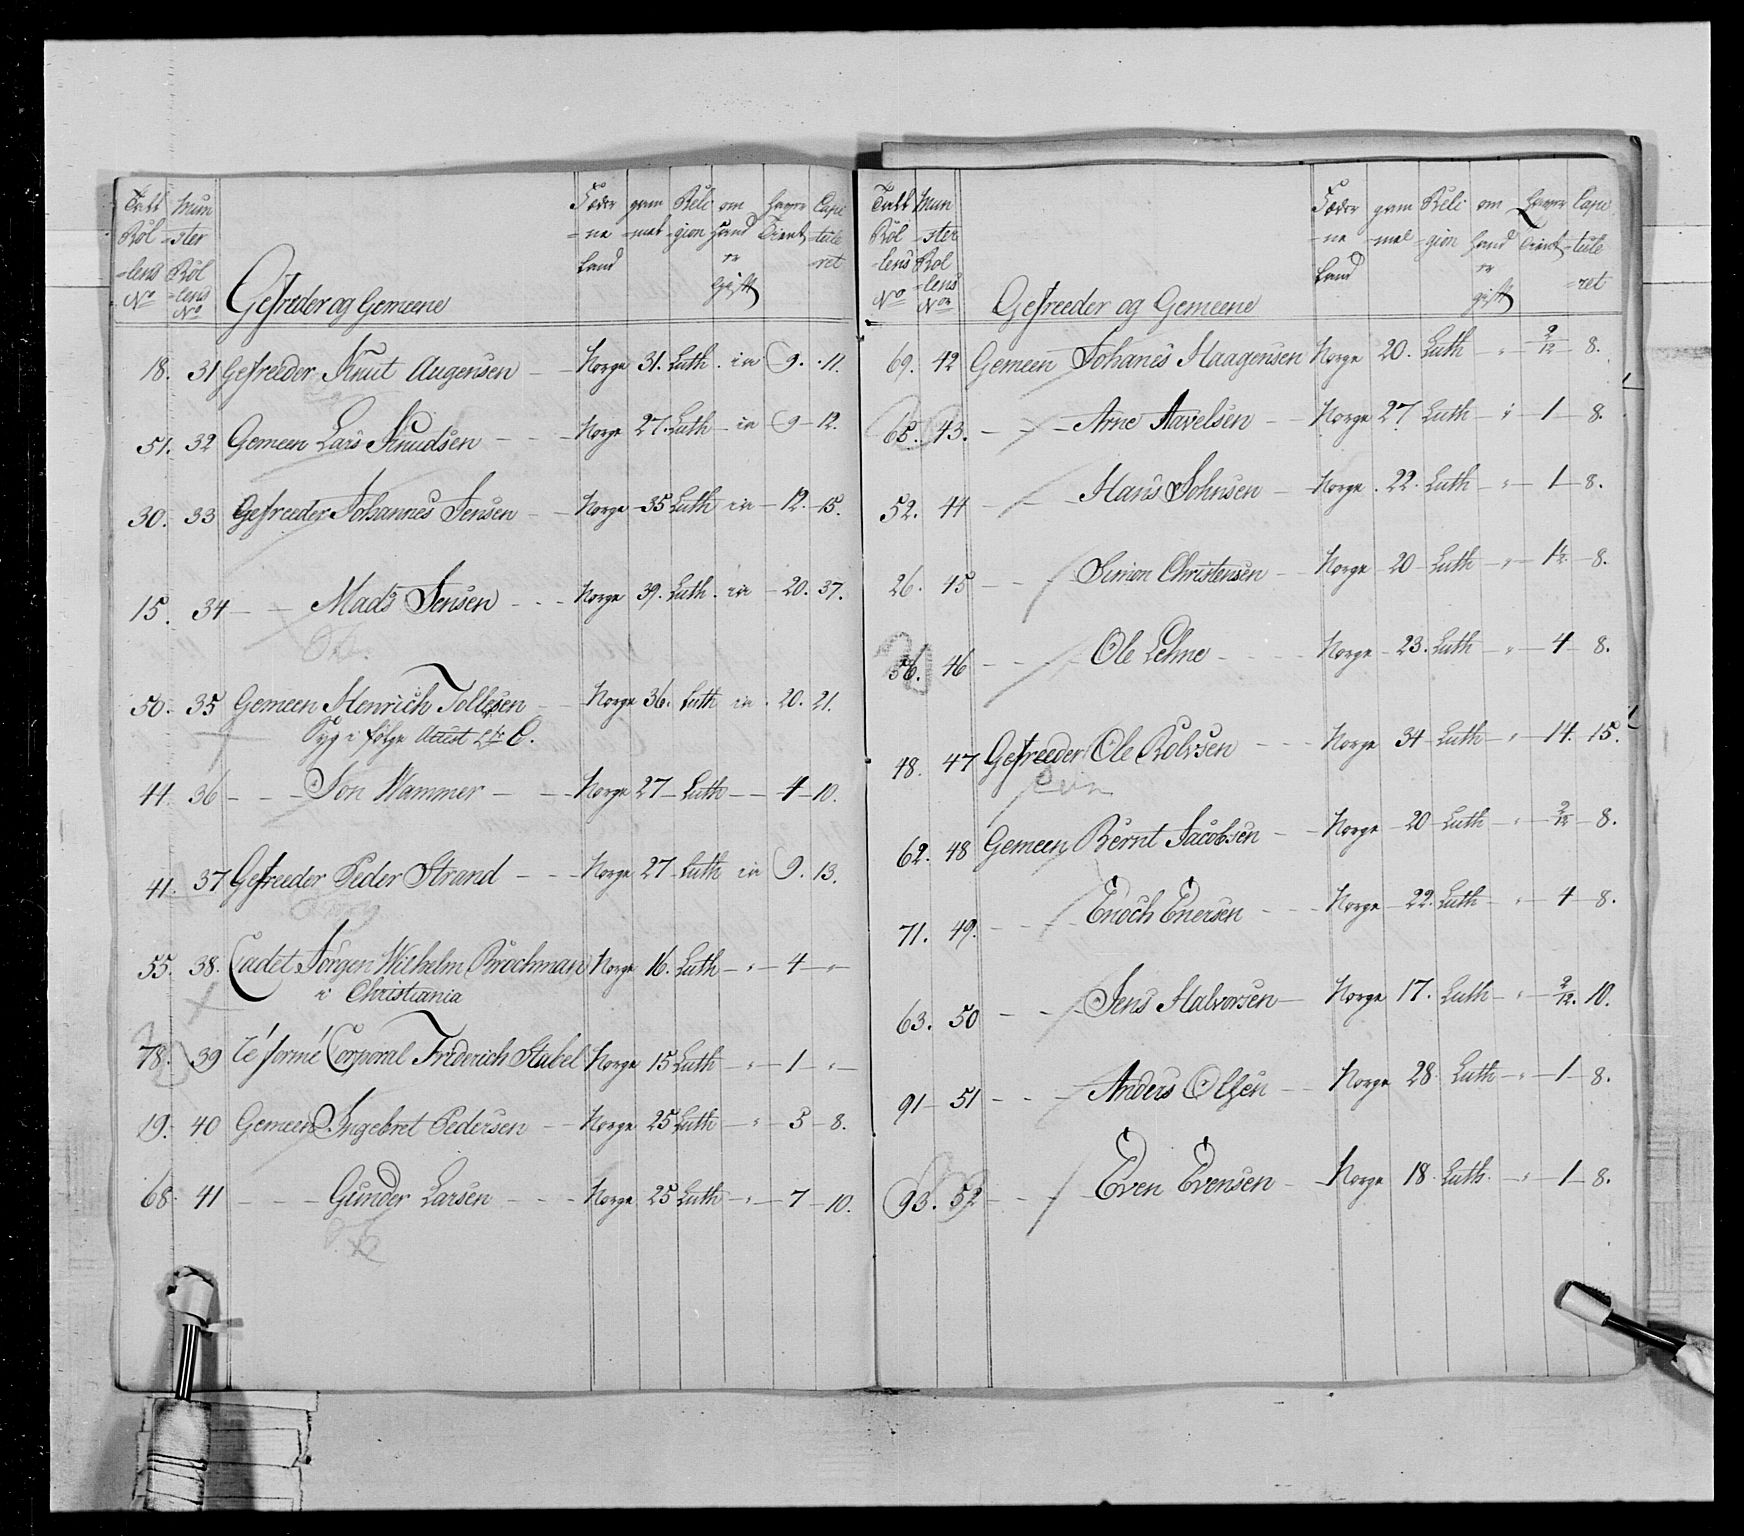 Tall Rol-lens No | Mun-ster Rol-lens No | Gefreder og Gemeene | Føder-ne Land | gam-mel | Reli-gion | om hand er gift | Haver Tient | Capi-tule-ret
18. 31 Gefreeder Knut Augensen - Norge 31. Luth. ia 9. 11.
51. 32 Gemeen Lars Knudsen - - Norge 27. Luth - ia 9 - 12.
30. 33 Gefreeder Johannes Jensen - Norge - 35 Luth ia - 12. - 15.
15. 34 - - Mads Jensen - - Norge 39. Luth. ia - 20. 37.
50. 35 Gemeen Henrich Tollefsen - Norge 36. Luth ia. 20. 21.
Syg i følge Attest Ltr C.
44. 36 - - - Jon Wammer - - Norge 27 - Luth - - 4 - 10.
41. 37 Gefreeder Peder Strand - - Norge 27 - Luth ia 9. 13.
55. 38. Cadet Jørgen Wilhelm Brochman Norge 16. Luth - " - 4 - " -
i Christiania
78. 39 reformé Corporal Friderich Stabel Norge 15 Luth - " - 1 - " -
19. 40 Gemeen Ingebret Pedersen - Norge 25 Luth - " - 5 - 8.
68. 41 - - - Gunder Larsen - - Norge 25 Luth - " - 7 - 10.
Tall Rol-lens No | Mun-ster Rol-lens No | Gefreeder og Gemeene | Føder-ne Land | gam-mel | Reli-gion | om hand er gift | Haver Tient | Capi-tule-ret
69. 42 Gemeen Johanes Haagensen Norge 20. Luth - " - 2/12 - 8.
65. 43. - - - Arne Aavelsen - Norge 27 Luth - " - 1 - 8.
52. 44 - - - Hans Johnsen - Norge. 22. Luth - " - 1 - 8.
26. 45 - - - Simon Christensen - Norge 20 - Luth - " - 1½ - 8.
56. 46 - - - Ole Lehne - - Norge - 23. Luth - " - 4 - 8.
48. 47 Gefreeder Ole Rolvsen - - Norge 34 - Luth - " - 14. 15.
62. 48 Gemeen Bernt Jacobsen - Norge - 20 - Luth - " - 2/12 - 8.
71. 49. - - - Enoch Enersen - - Norge - 22. Luth - " - 4 - 8.
63. 50 - - - Jens Halvorsen - Norge 17. Luth - " - 2/12. 10.
91 - 51 - - - Anders Olsen - Norge 28. Luth - " - 1 - 8.
93. 52 - - - Even Evensen - Norge 18. Luth. - " - 1 - 8.